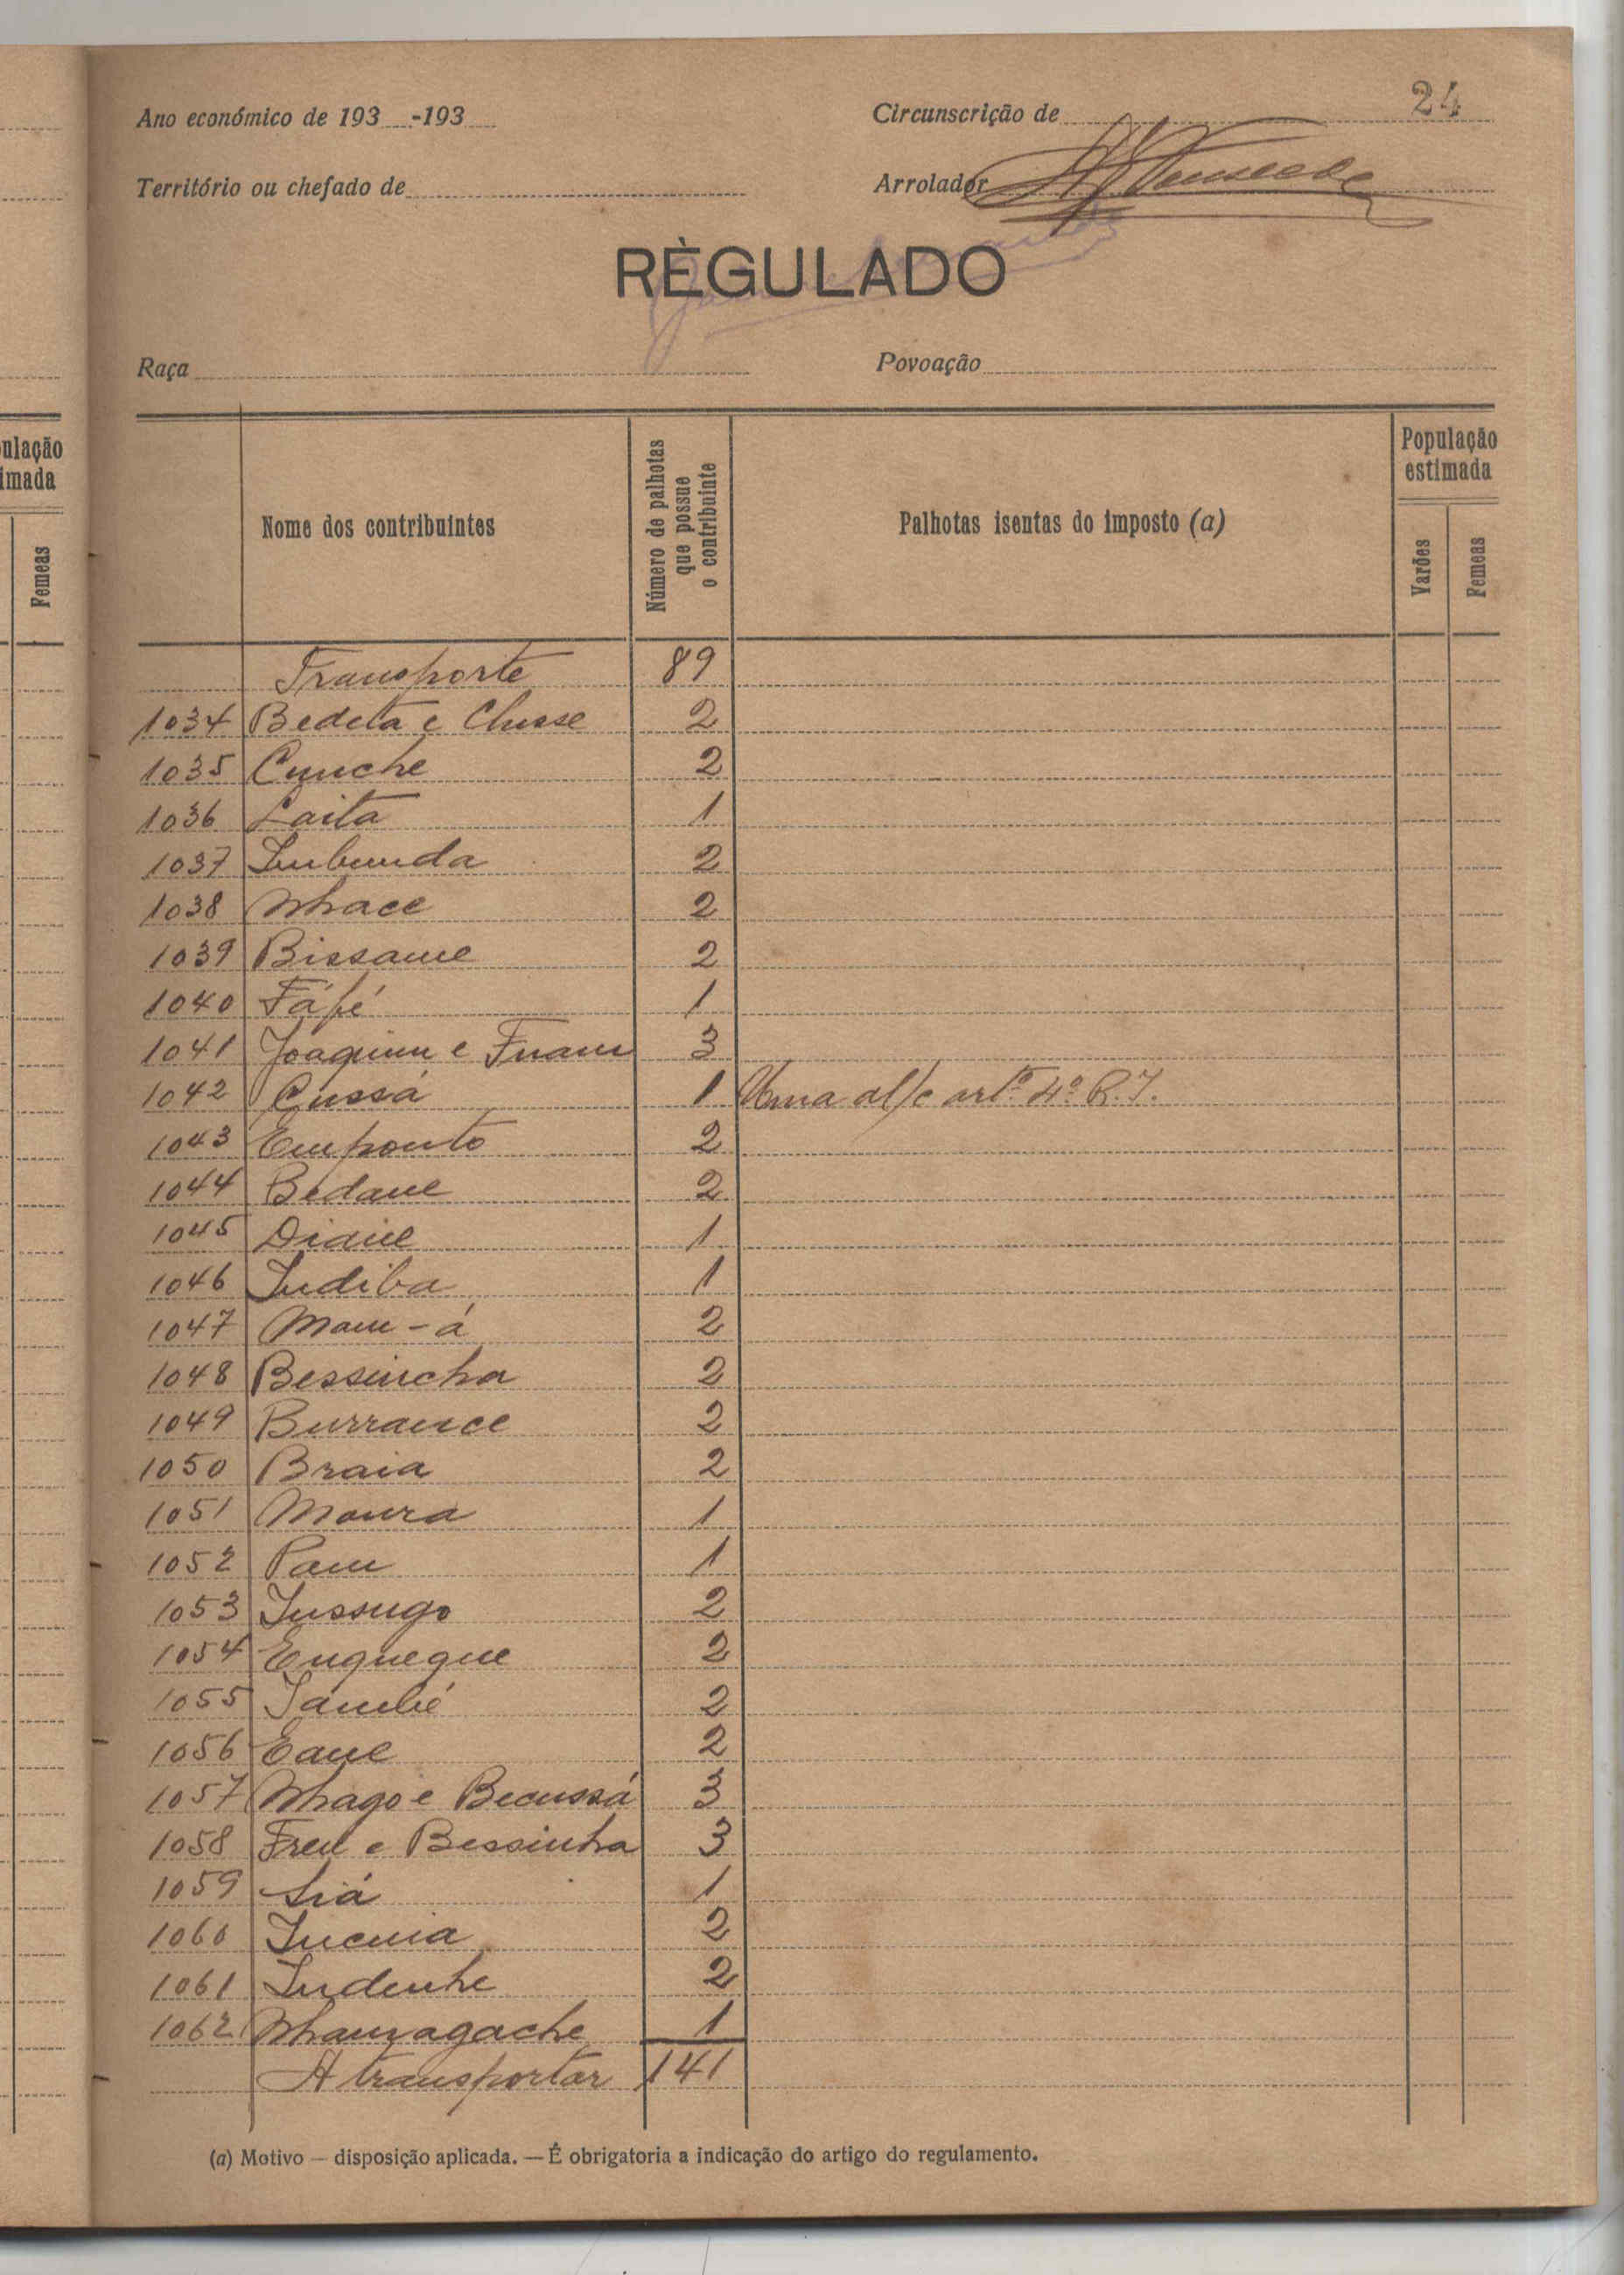 ulação
imada
Femeas
24
Ano económico de 193 -193
Circunscrição de
Território ou chefado de
Arrolador
RÈGULADO
Raça
Povoação
Nome dos contribuintes
Número de palhotas que possue o contribuinte
Palhotas isentas do imposto (a)
População estimada
Varões
Femeas
Transporte 89
1034 Bedeta e Chusse 2
1035 Cunche 2
1036 Laita 1
1037 Imbunda 2
1038 Nhace 2
1039 Bissame 2
1040 Fáfé 1
1041 Joaquim e 3
1042 Cussá 1 Uma al/c artº 4º R.I.
1043 Emponto 2
1044 Bedane 2
1045 1
1046 Indiba 1
1047 Mam-á 2
1048 Bessincha 2
1049 Burrance 2
1050 Braia 2
1051 Moura 1
1052 Pam 1
1053 Jussugo 2
1054 Enquegue 2
1055 2
1056 Eane 2
1057 Nhago e Becussá 3
1058 e Bessinha 3
1059 Siá 1
1060 2
1061 Indenhe 2
1062 1
A transportar 141
(a) Motivo — disposição aplicada. — É obrigatoria a indicação do artigo do regulamento.